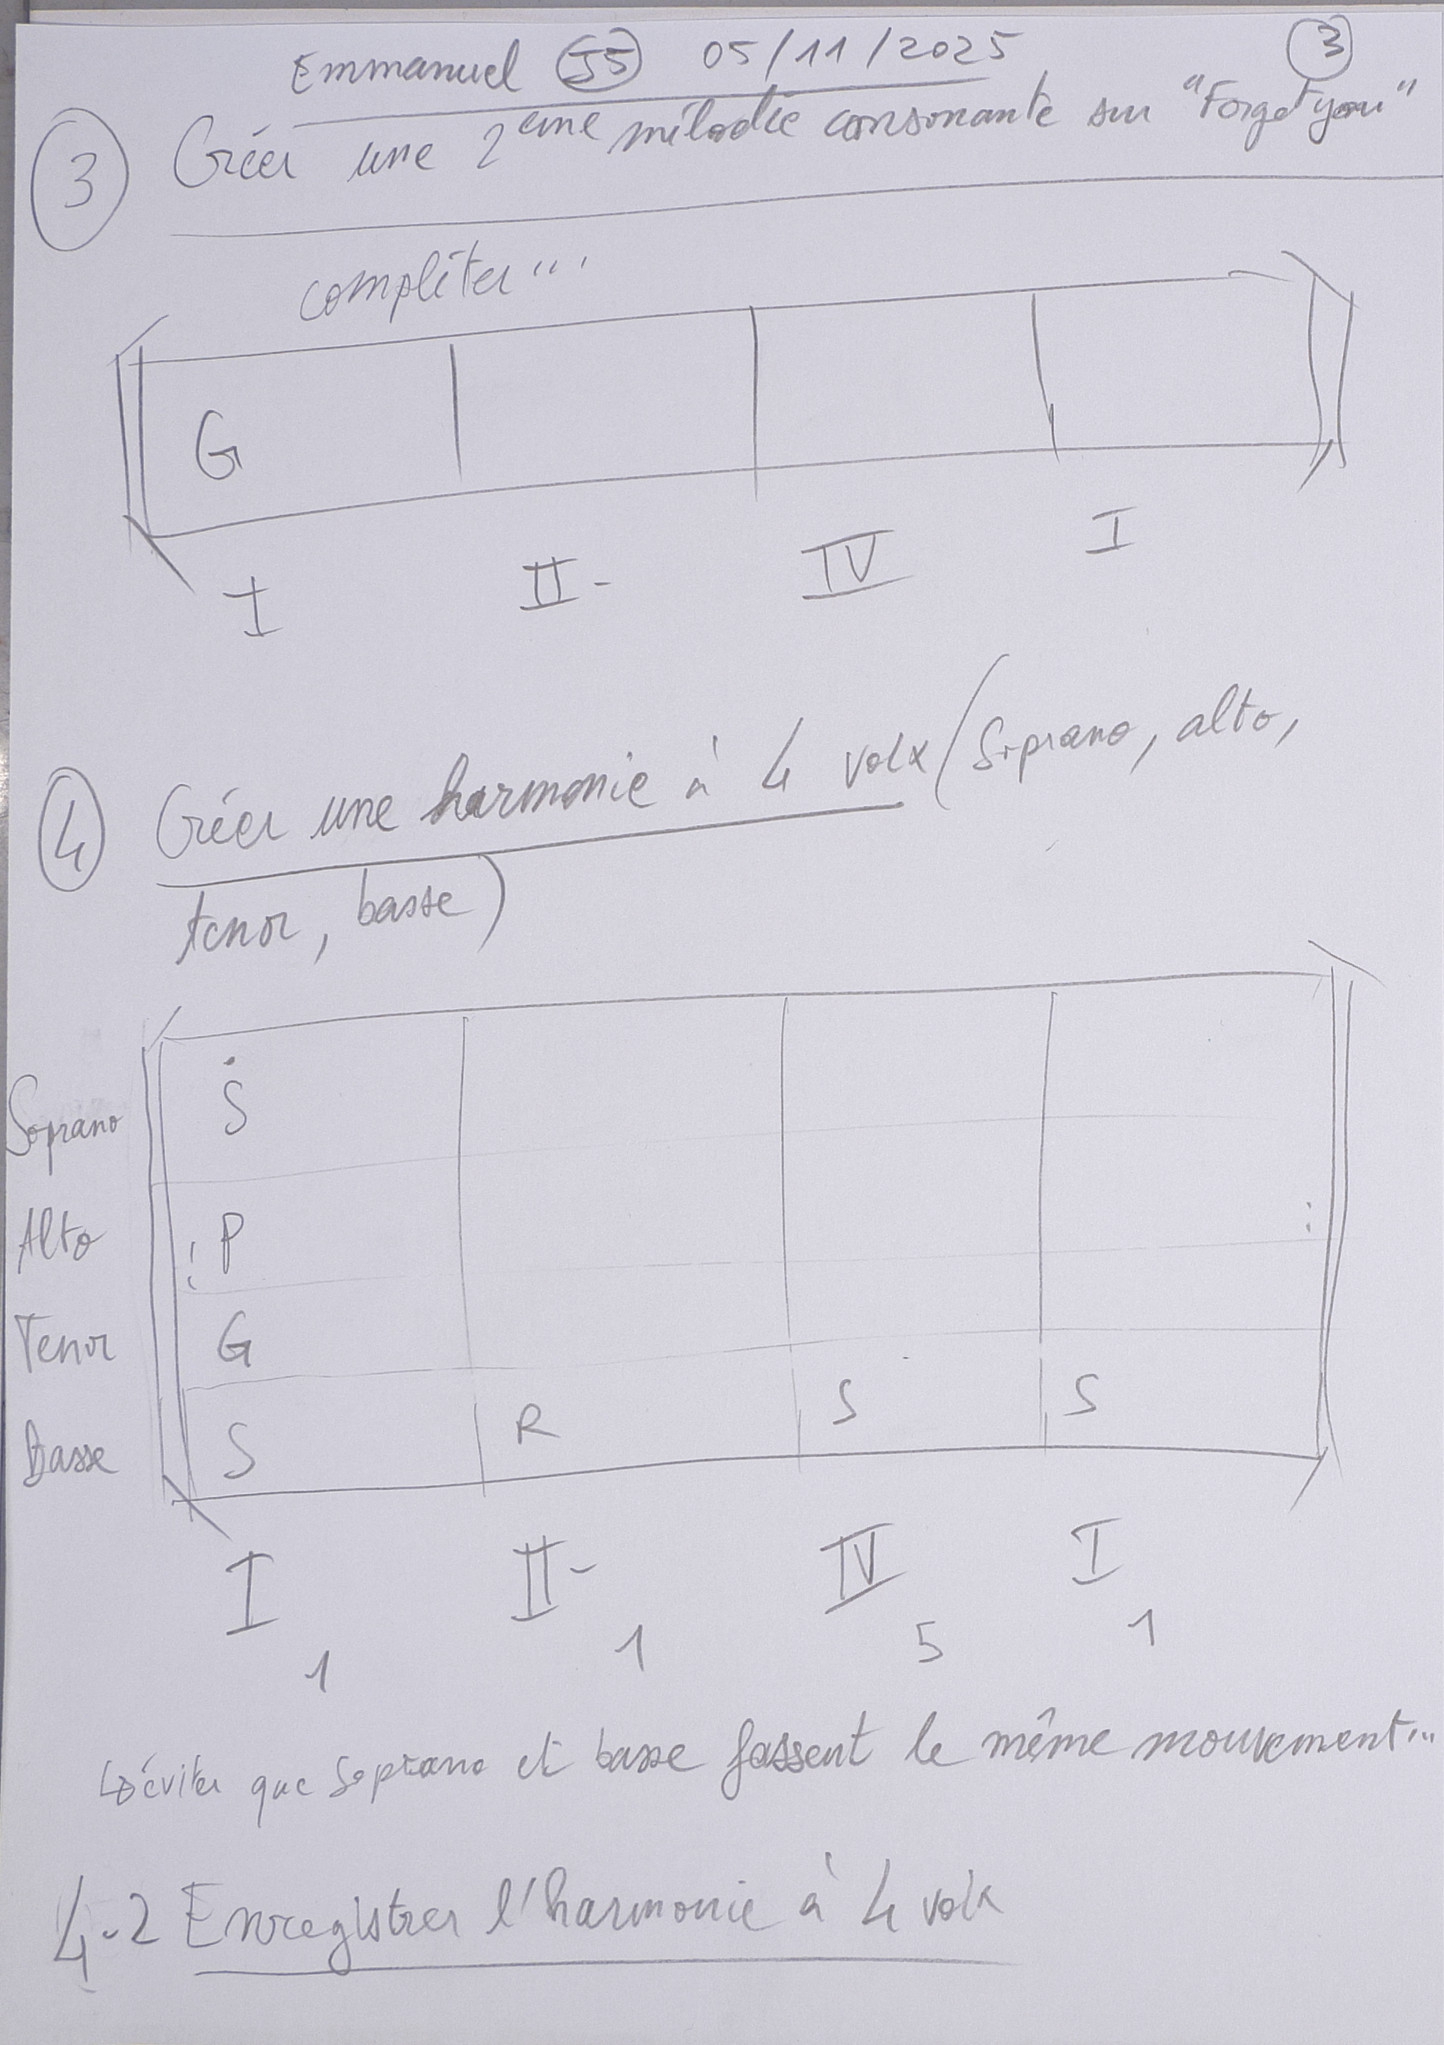 Emmanuel J5 05/11/2025 3
3 Créer une 2eme mélodie consonante sur "Forget you"
compléter...
G
I II- IV I
4 Créer une harmonie à 4 voix (Soprano, alto,
tenor, basse)
Soprano Ṡ
Alto : P :
Tenor G
Basse S R S S
I II- IV I
1 1 5 1
↳ éviter que Soprano et basse fassent le même mouvement...
4-2 Enregistrer l'harmonie à 4 voix